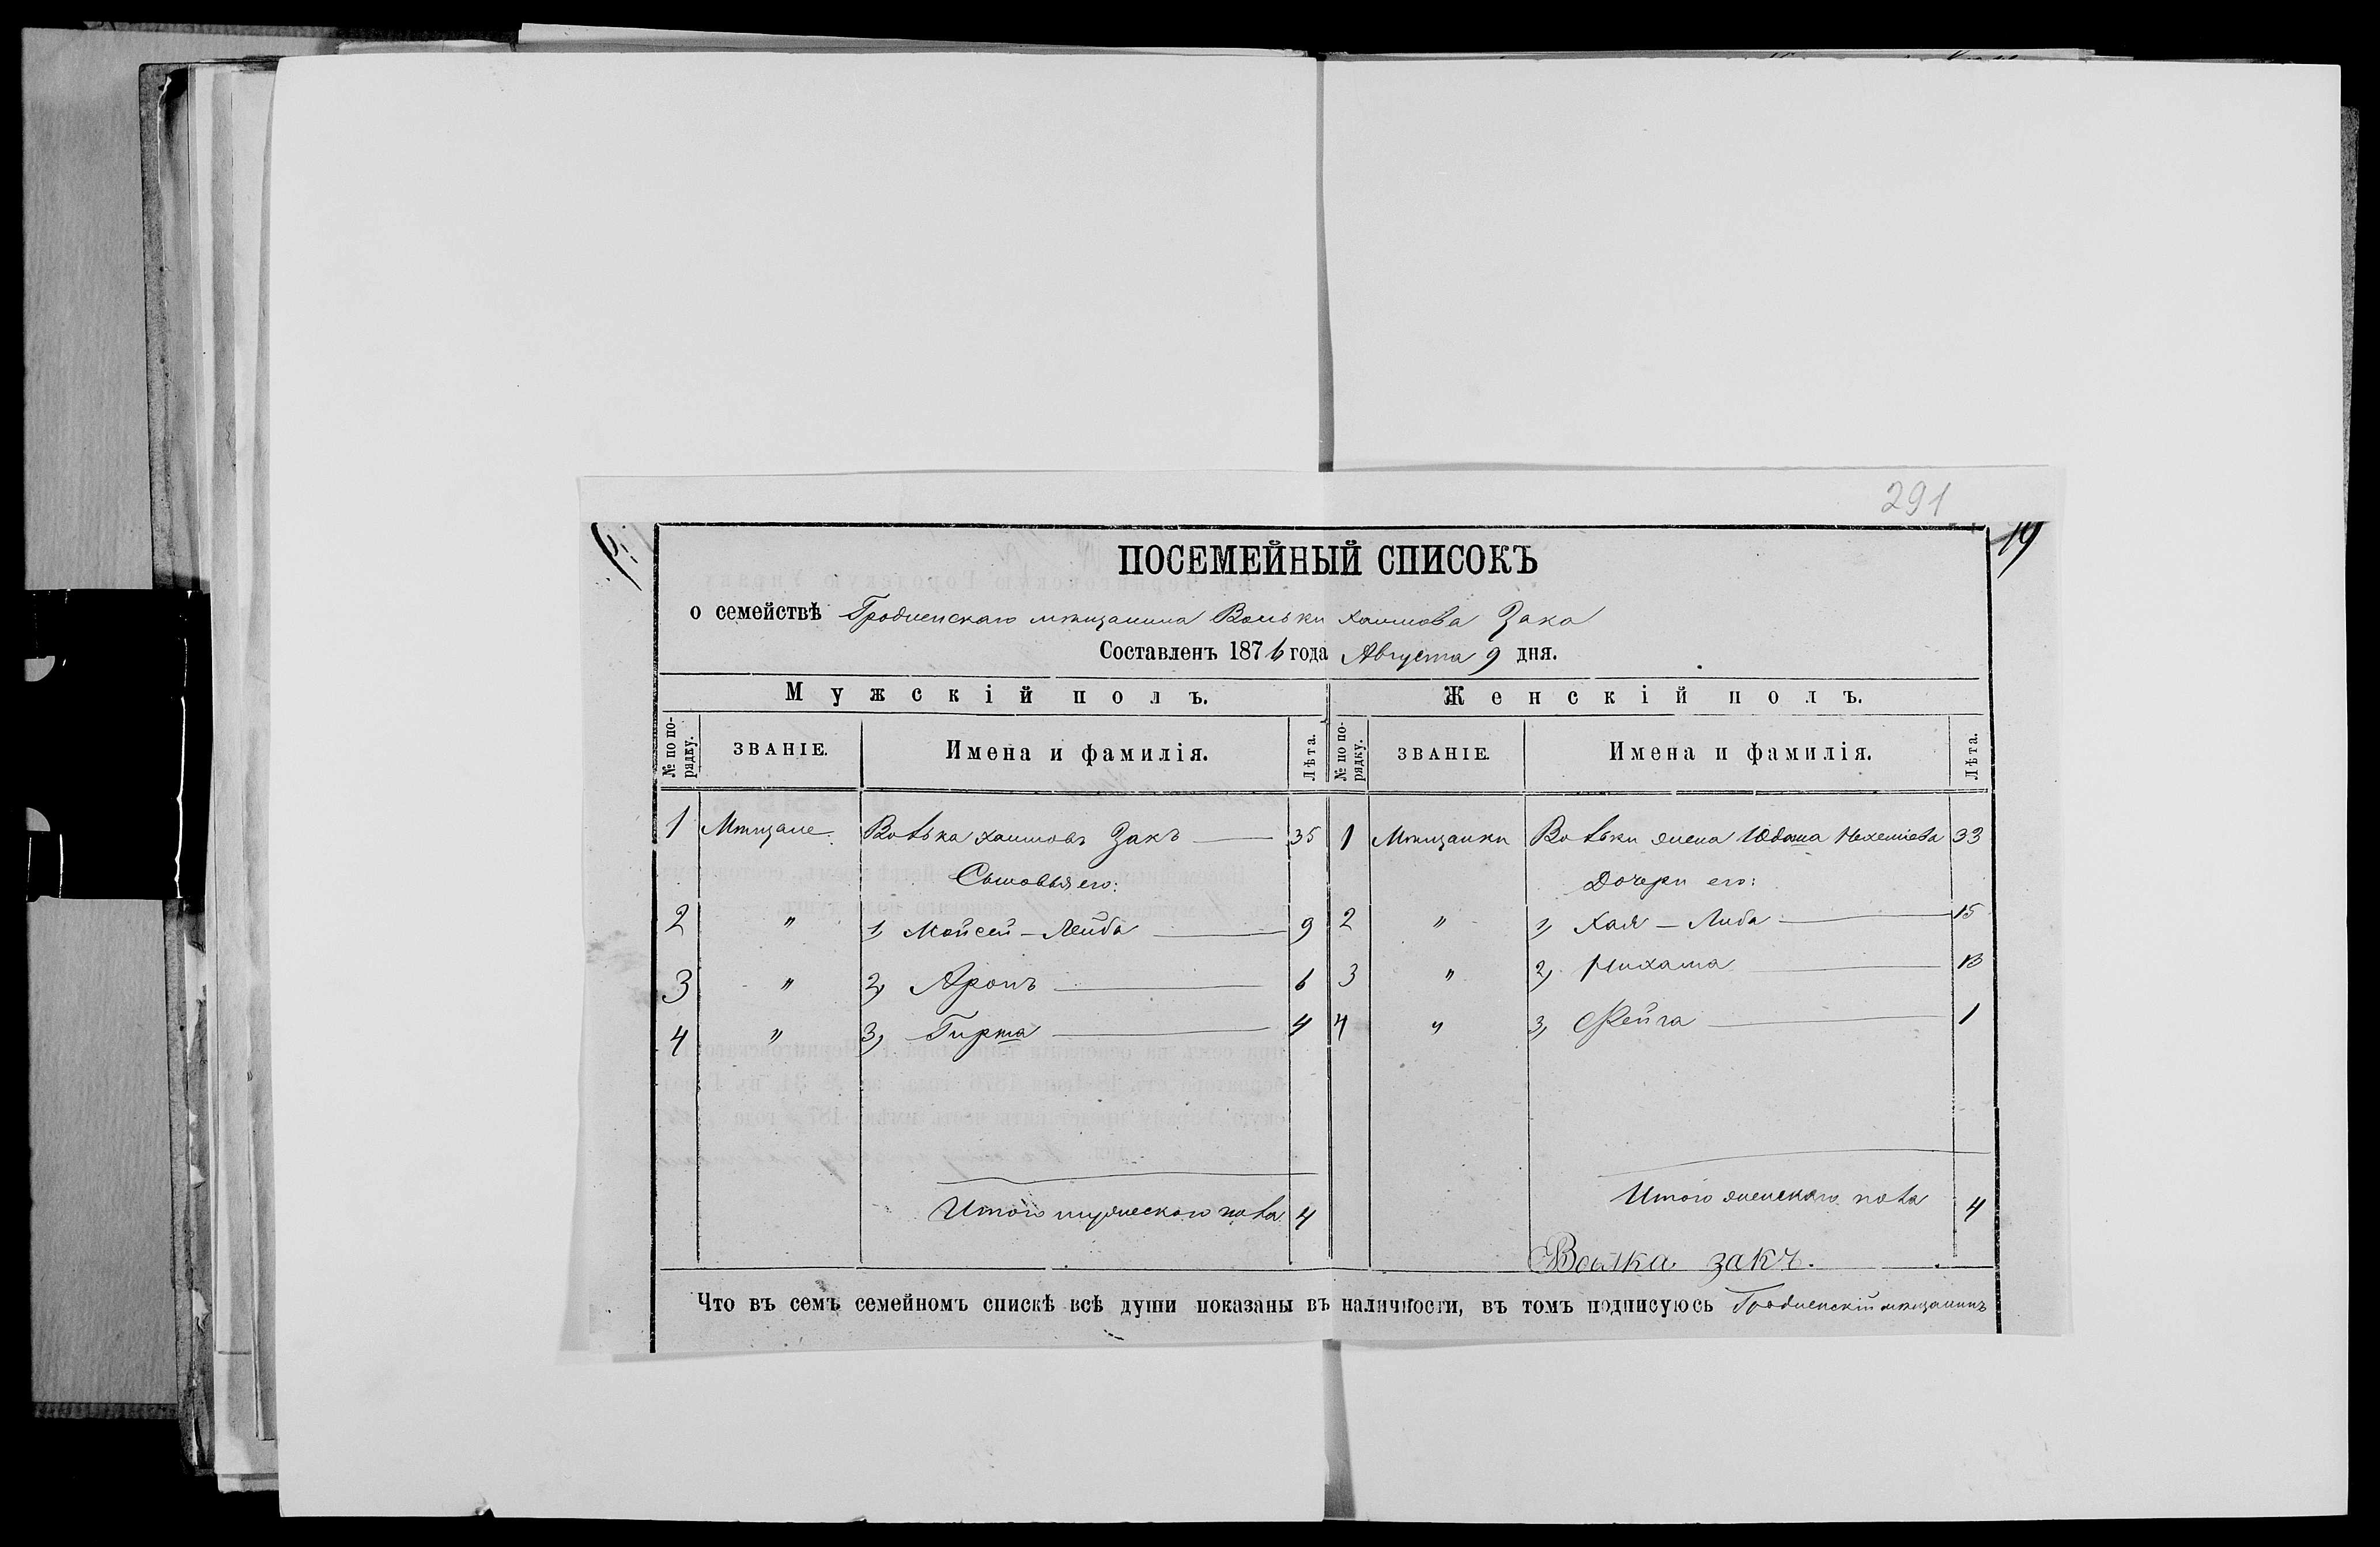 291
19
ПОСЕМЕЙНЫЙ СПИСОКЪ
о семействѣ Гродненскаго мѣщанина Вольки Хаимова Зака
Составленъ 1876 года Августа 9 дня.
Мужскій полъ. Женскій полъ.
№ по порядку. ЗВАНІЕ. Имена и фамилія. Лѣта. № по порядку. ЗВАНІЕ. Имена и фамилія. Лѣта.
1 Мѣщане. Волька Хаимовъ Закъ 35 1 Мѣщанки Вольки жена Юдаша 33
Сыновья его: Дочери его:
2 " 1, Мойсей-Лейба 9 2 " 1, Хая-Либа 15
3 " 2, Аронъ 6 3 " 2, 13
4 " 3, Гирша 4 4 " 3, Фейга 1
Итого мужескаго пола 4 Итого женскаго пола 4
Волка закъ.
Что въ семъ семейномъ спискѣ всѣ души показаны въ наличности, въ томъ подписуюсь Гродненскій мѣщанинъ